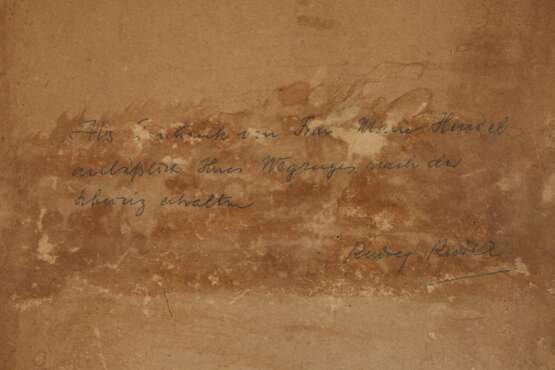 Als Geschenk von Frau Marie Hendel
anläßlich Ihres Wegzuges nach der
Schweiz erhalten